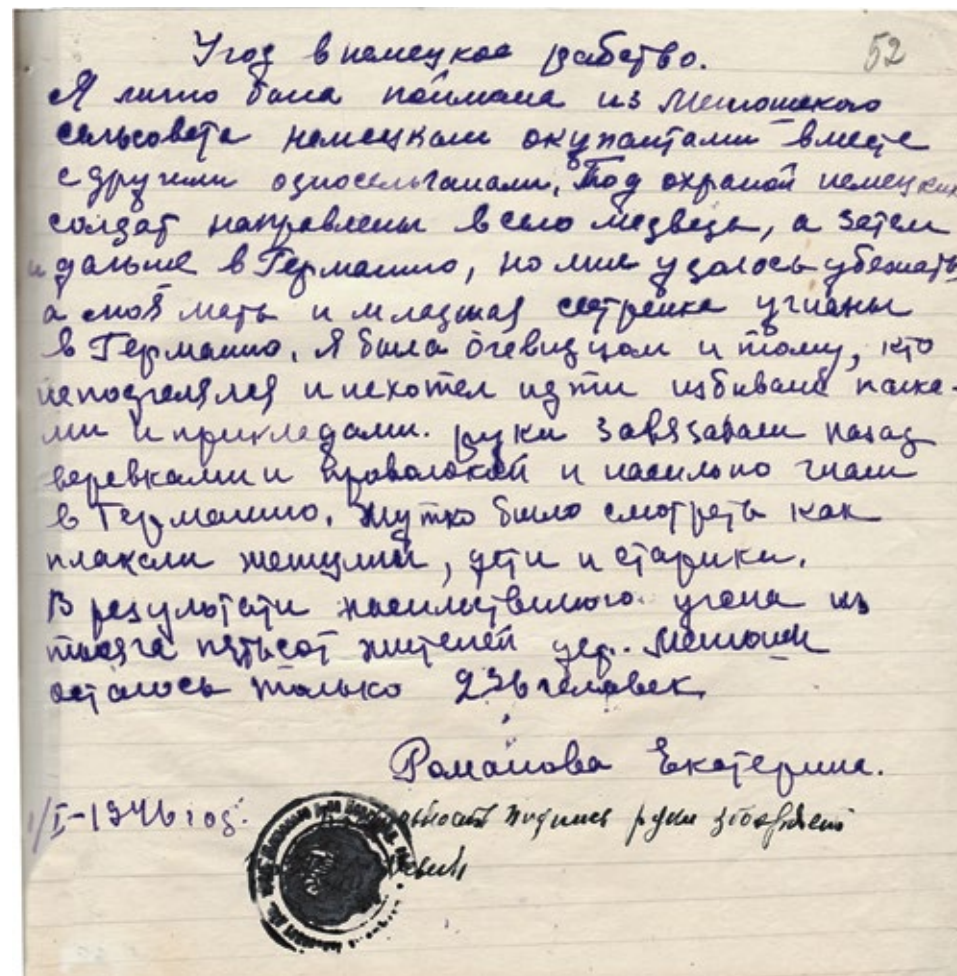 Угод в немецкое рабство. 52
Я лично была поймана из Менюшского
сельсовета немецкими окупантами вместе
с другими односельчанами, Под охраной немецких
солдат направлены в село медведь, а затем
и дальше в Германию, но мне удалось убежать
а моя мать и младшая сестренка угнаны
в Германию. Я была очевидцом и тому, кто
неподчелялся и нехотел идти избивали палка-
ми и прикладами. руки завязавали назад
веревками и проволокой и насильно гнали
в Германию. Жутко было смотреть как
плакали женщины, дети и старики.
В результати насильствиного угона из
тысяга пятьсот жителей дер. Менюши
осталось только 236 человек.
Романова Екатерина.
1/I-1946 год.
подпись руки